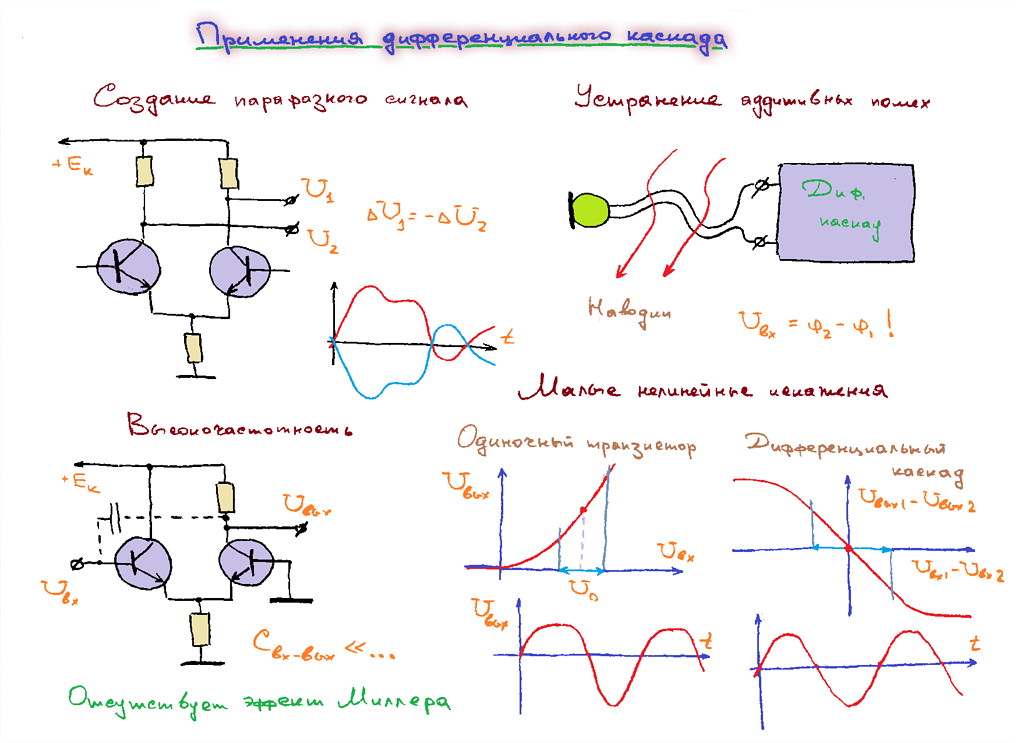 Применения дифференциального каскада
Создание парафазного сигнала
+Eк
U1
U2
ΔU1 = -ΔU2
t
Устранение аддитивных помех
Диф.
каскад
Наводки
Uвх = φ2 - φ1 !
Высокочастотность
+Eк
Uвых
Uвх
Cвх-вых << ...
Отсутствует эффект Миллера
Малые нелинейные искажения
Одиночный транзистор
Uвых
Uвх
U0
Uвых
t
Дифференциальный
каскад
Uвых1 - Uвых2
Uвх1 - Uвх2
t